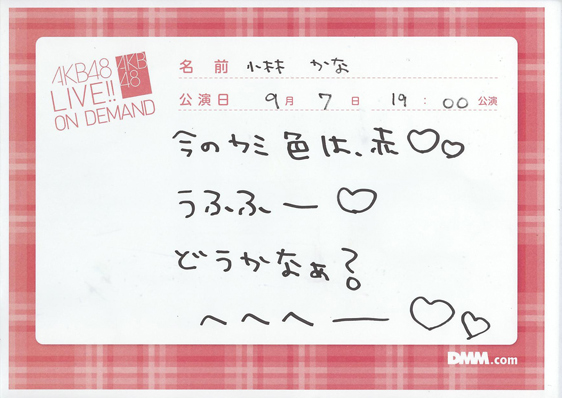 AKB48
LIVE!!
ON DEMAND
AKB
48
名前 小林 かな
公演日 9月 7日 19:00 公演
今のカミ色は、赤♡♡
うふふー♡
どうかなぁ?
へへへー♡♡
DMM.com